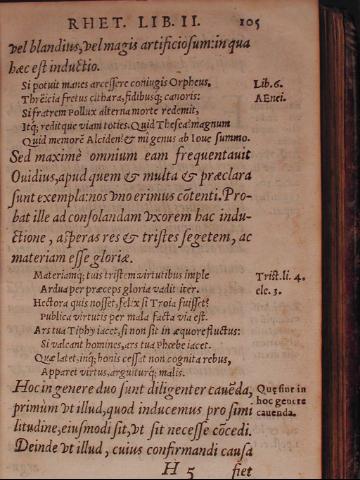 RHET. LIB. II. 105
vel blandius, vel magis artificiosum: in qua
hæc est inductio.
Si potuit manes arcessere coniugis Orpheus, Lib. 6.
Threicia fretus cithara, fidibusq; canoris: AEnei.
Si fratrem Pollux alterna morte redemit,
Itq; reditque viam toties. Quid Thesea? magnum
Quid memorē Alciden? & mi genus ab Ioue summo.
Sed maximè omnium eam frequentauit
Ouidius, apud quem & multa & præclara
sunt exempla: nos vno erimus cōtenti. Pro-
bat ille ad consolandam vxorem hac indu-
ctione, asperas res & tristes segetem, ac
materiam esse gloriæ.
Materiamq; tuis tristem virtutibus imple Trist. li. 4.
Ardua per præceps gloria vadit iter. ele. 3.
Hectora quis nosset, felix si Troia fuisset?
Publica virtutis per mala facta via est.
Ars tua Tiphy iacet, si non sit in æquore fluctus:
Si valeant homines, ars tua Phœbe iacet.
Quæ latet, inq; bonis cessat non cognita rebus,
Apparet virtus, arguiturq; malis.
Hoc in genere duo sunt diligenter cauēda, Quę sint in
primùm vt illud, quod inducemus pro simi hoc genere
litudine, eiusmodi sit, vt sit necesse cōcedi. cauenda.
Deinde vt illud, cuius confirmandi causa
H 5 fiet